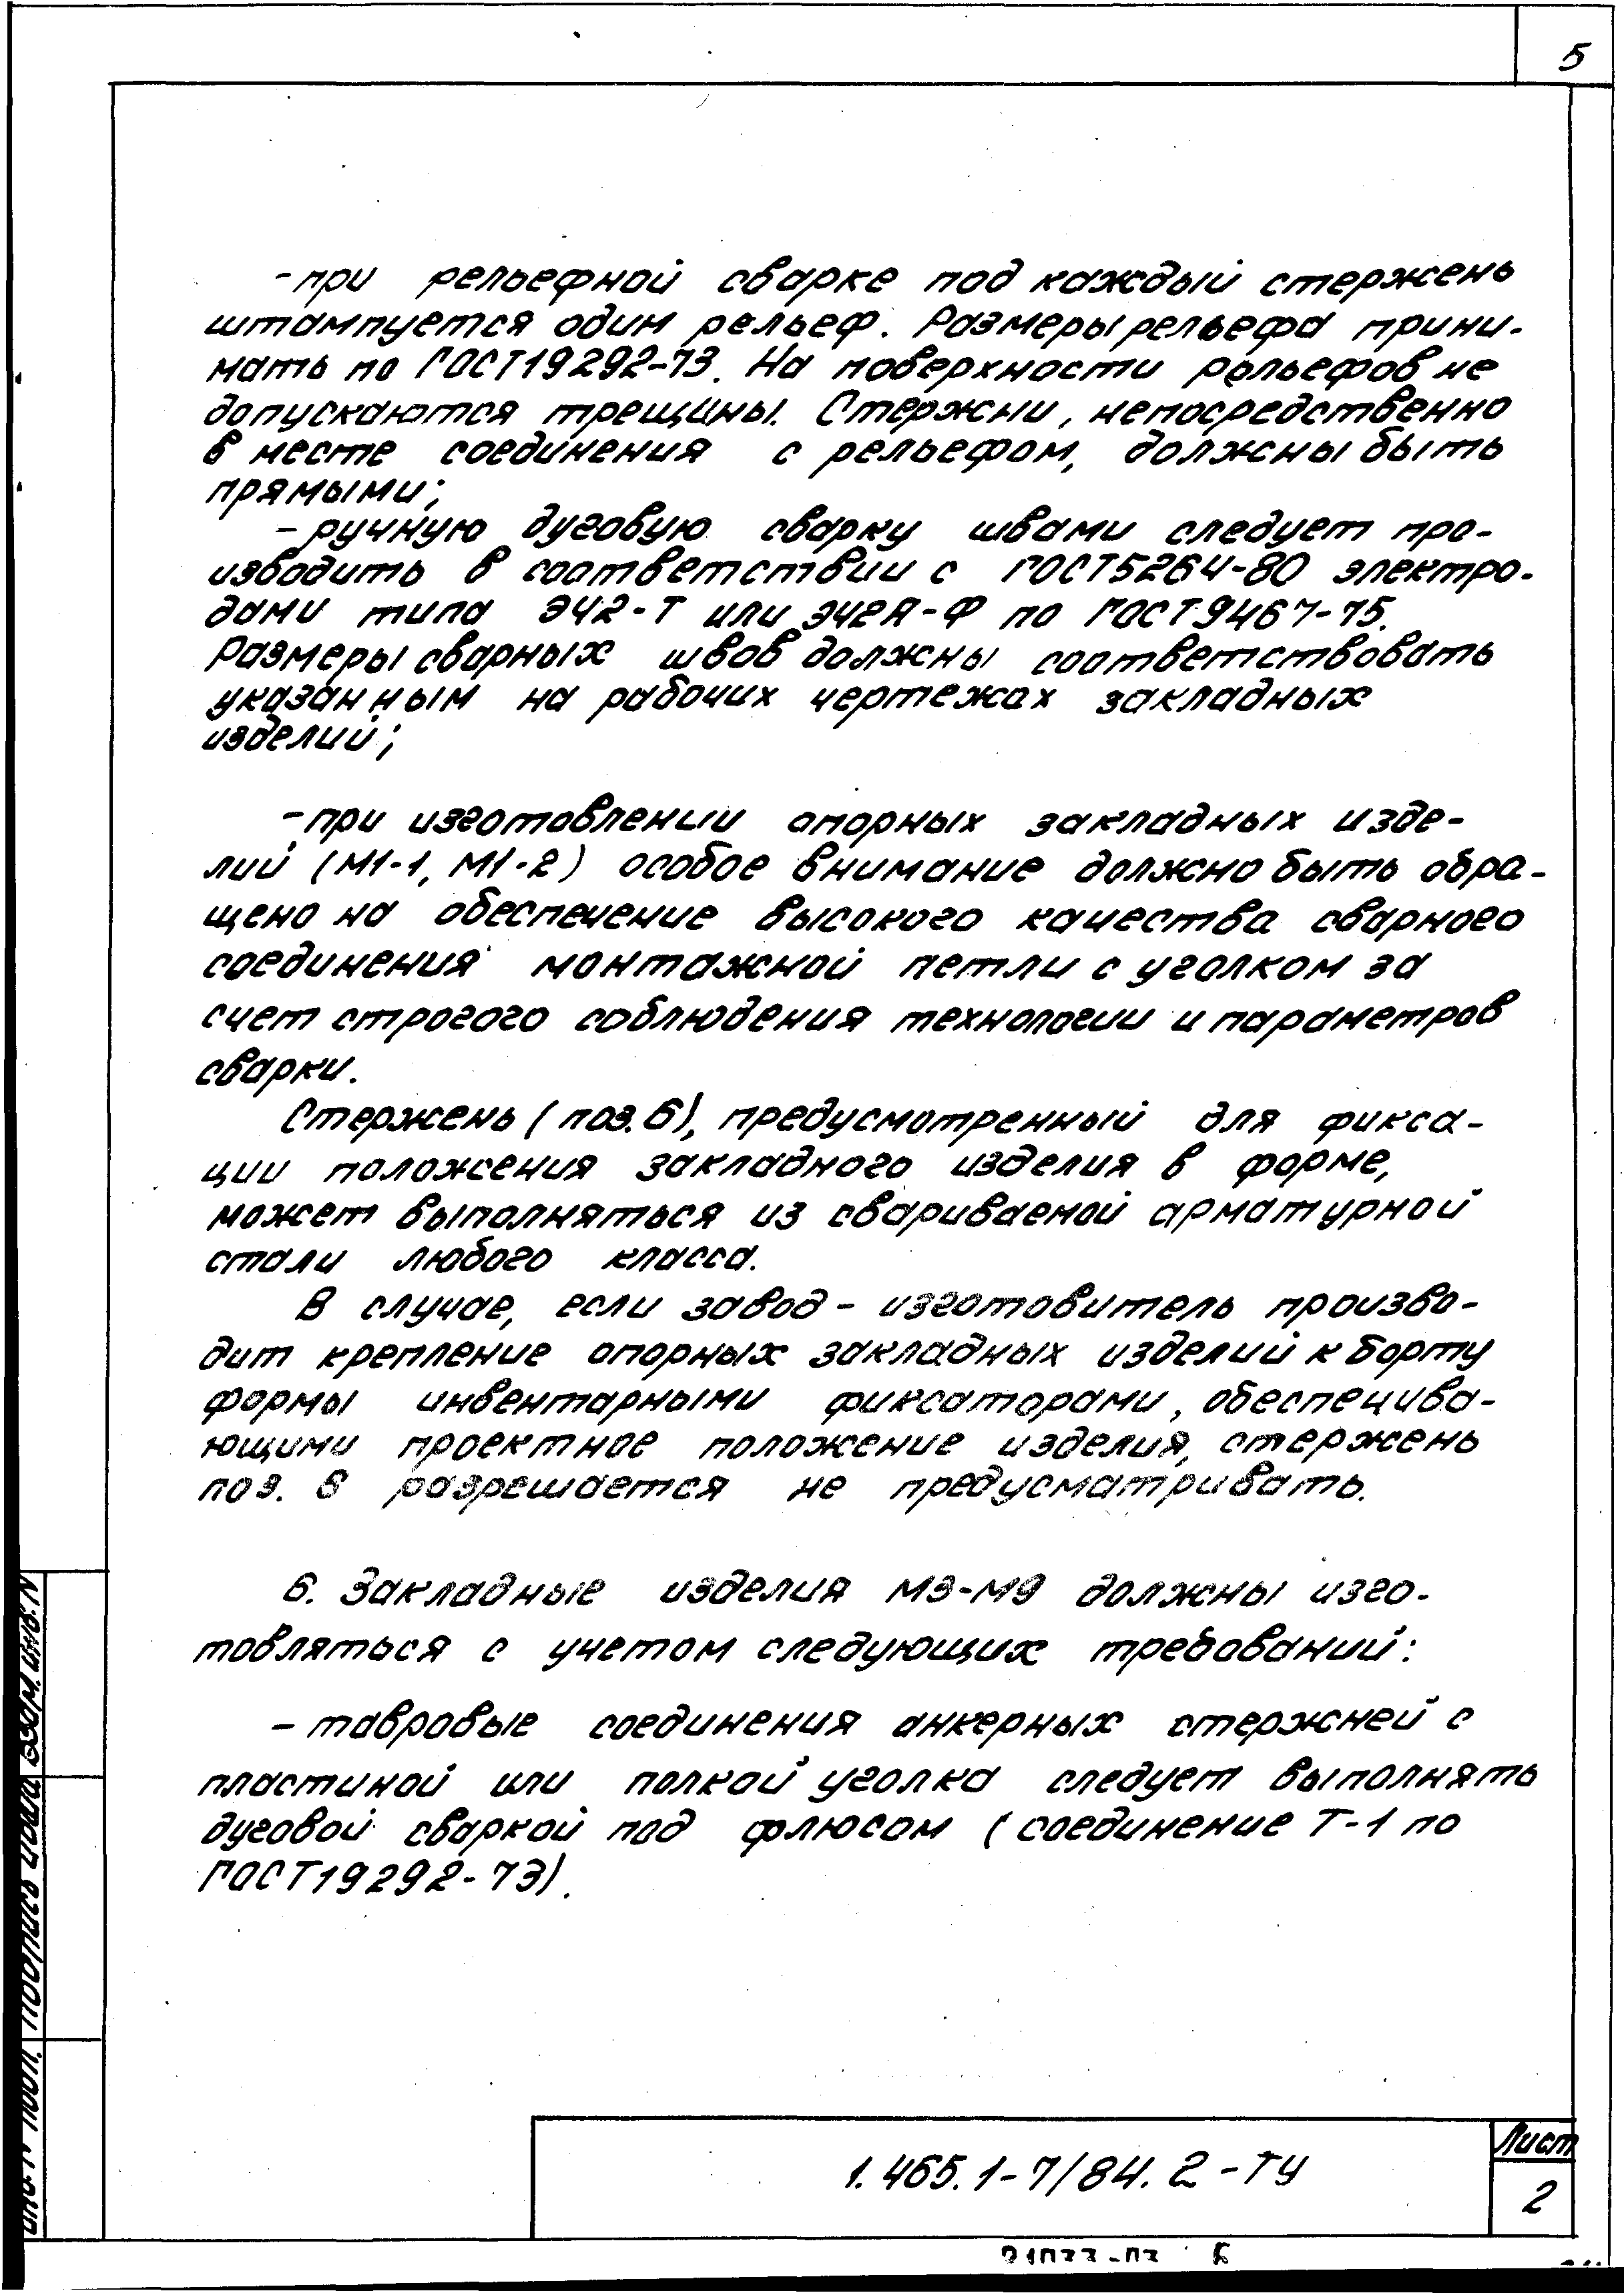 5
- при рельефной сварке под каждый стержень
штампуется один рельеф. Размеры рельефа прини-
мать по ГОСТ19292-73. На поверхности рельефов не
допускаются трещины. Стержни, непосредственно
в месте соединения с рельефом, должны быть
прямыми;
- ручную дуговую сварку швами следует про-
изводить в соответствии с ГОСТ5264-80 электро-
дами типа Э42-Т или Э42А-Ф по ГОСТ9467-75.
Размеры сварных швов должны соответствовать
указанным на рабочих чертежах закладных
изделий;
- при изготовлении опорных закладных изде-
лий (М1-1, М1-2) особое внимание должно быть обра-
щено на обеспечение высокого качества сварного
соединения монтажной петли с уголком за
счет строгого соблюдения технологии и параметров
сварки.
Стержень (поз. 6), предусмотренный для фикса-
ции положения закладного изделия в форме,
может выполняться из свариваемой арматурной
стали любого класса.
В случае, если завод - изготовитель произво-
дит крепление опорных закладных изделий к борту
формы инвентарными фиксаторами, обеспечива-
ющими проектное положение изделия, стержень
поз. 6 разрешается не предусматривать.
6. Закладные изделия М3-М9 должны изго-
товляться с учетом следующих требований:
- тавровые соединения анкерных стержней с
пластиной или полкой уголка следует выполнять
дуговой сваркой под флюсом (соединение Т-1 по
ГОСТ19292-73).
Подпись и дата Взам. инв. N
1.465.1-7/84.2-ТУ
Лист
2